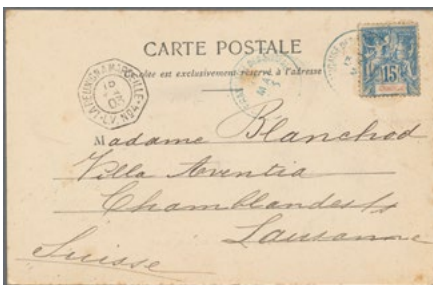 CARTE POSTALE
Ce côté est exclusivement réservé à l'adresse
LA REUNION A MARSEILLE
15
03
15
Madame Blanchod
Villa Aventia
Chamblandes s/
Lausanne
Suisse